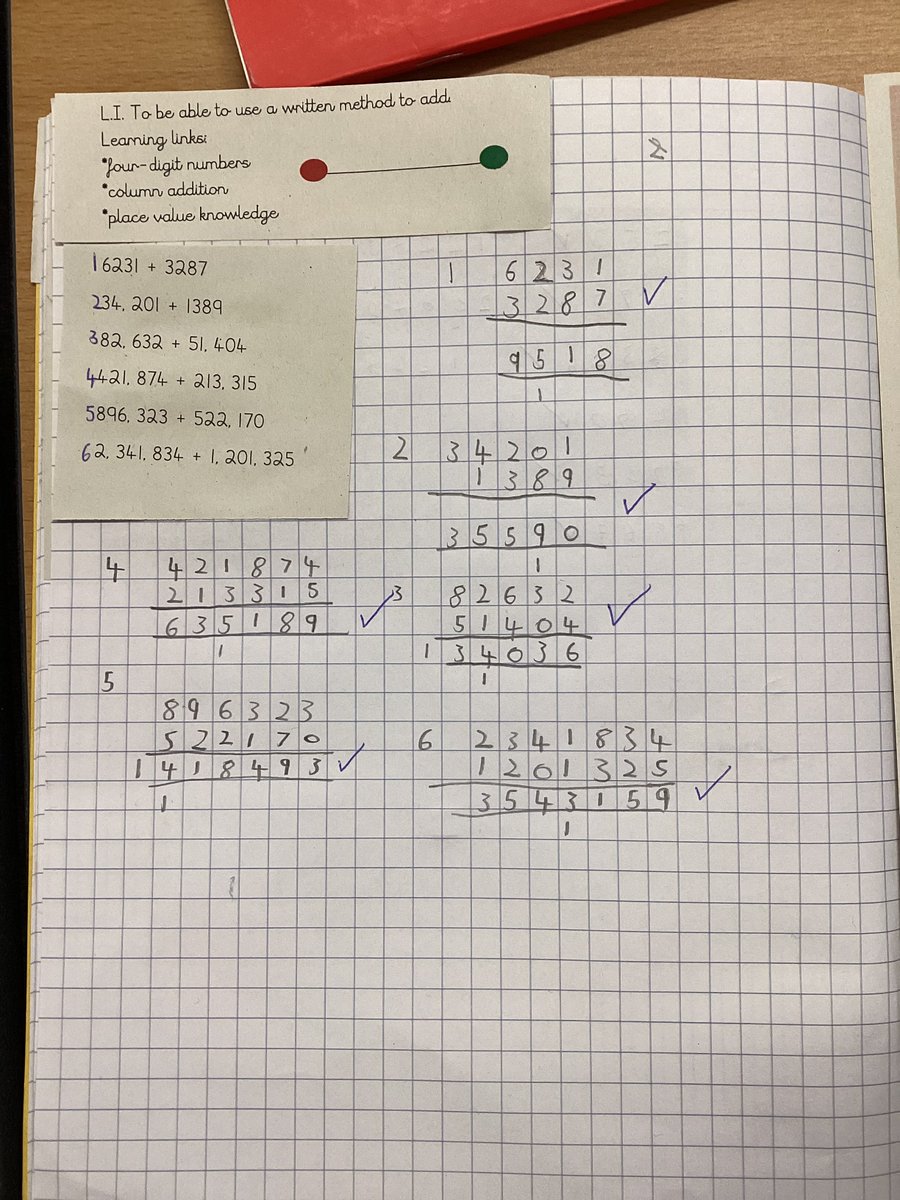 L.I. To be able to use a written method to add.
Learning links:
*four-digit numbers
*column addition
*place value knowledge
2
1 6231 + 3287
2 34, 201 + 1389
3 82, 632 + 51, 404
4 421, 874 + 213, 315
5 896, 323 + 522, 170
6 2, 341, 834 + 1, 201, 325
1 6 2 3 1
3 2 8 7 ✓
9 5 1 8
1
2 3 4 2 0 1
1 3 8 9
✓
3 5 5 9 0
1
3 8 2 6 3 2
5 1 4 0 4 ✓
1 3 4 0 3 6
1
4 4 2 1 8 7 4
2 1 3 3 1 5
6 3 5 1 8 9 ✓
1
5
8 9 6 3 2 3
5 2 2 1 7 0
1 4 1 8 4 9 3 ✓
1
6 2 3 4 1 8 3 4
1 2 0 1 3 2 5
3 5 4 3 1 5 9 ✓
1
1